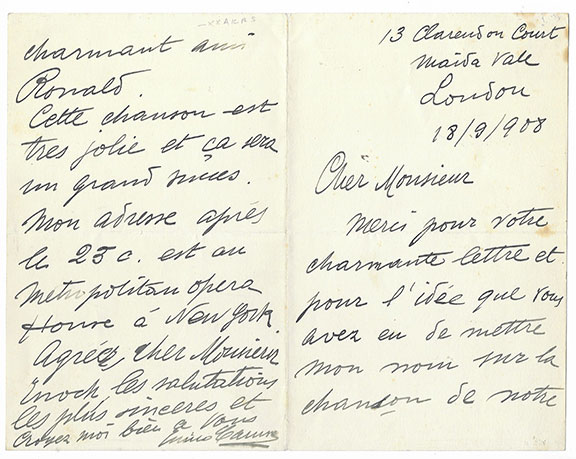 13 Clarendon Court
Maida Vale
London
18/9/908
Cher Monsieur
Merci pour votre
charmante lettre et
pour l'idée que vous
avez eu de mettre
mon nom sur la
chanson de notre
charmant ami
Ronald.
Cette chanson est
tres jolie et ça sera
un grand succes.
Mon adresse après
le 23 c. est au
Metropolitan opera
House à New York.
Agréez cher Monsieur
Enoch les salutations
les plus sinceres et
croyez moi bien a vous
Enrico Caruso